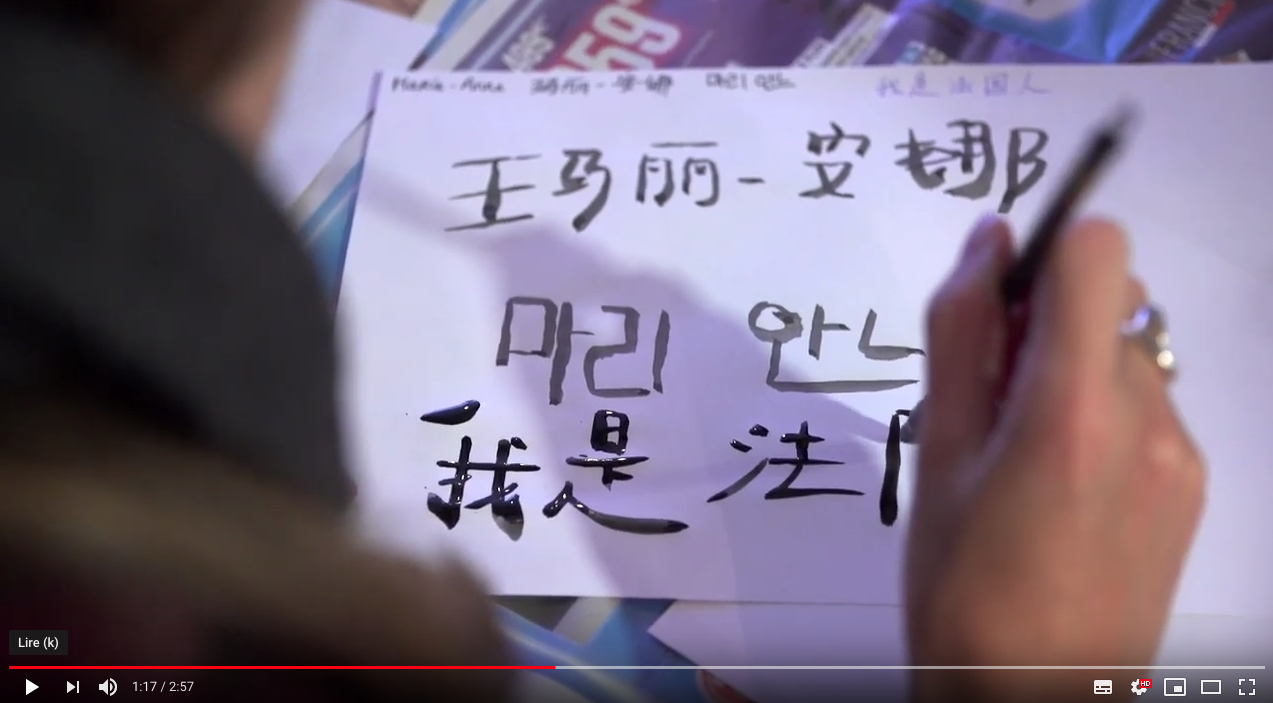 59
Marie-Anne 玛丽-安娜 마리 안느 我是法国人
玛丽-安娜
마리 안느
我是法
Lire (k)
1:17 / 2:57
HD